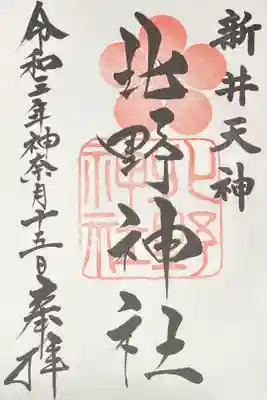 新井天神
北野神社
北野
神社
令和三年神奈月十五日奉拝